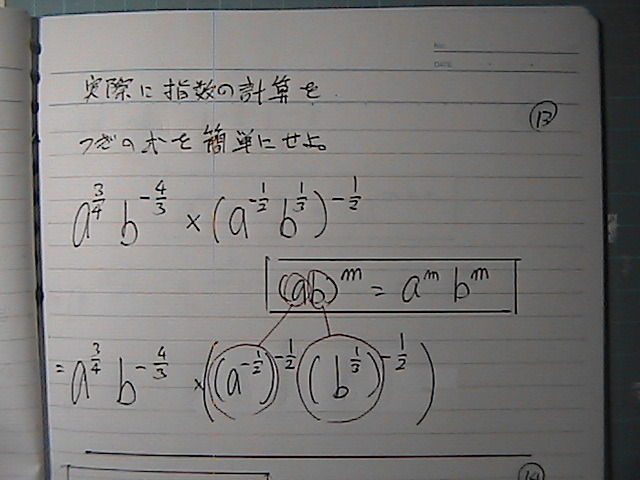 No.
DATE
実際に指数の計算を
⑬
つぎの式を簡単にせよ。
a^{3/4} b^{-4/3} × (a^{-1/2} b^{1/3})^{-1/2}
(ab)^m = a^m b^m
= a^{3/4} b^{-4/3} × ((a^{-1/2})^{-1/2} (b^{1/3})^{-1/2})
⑭